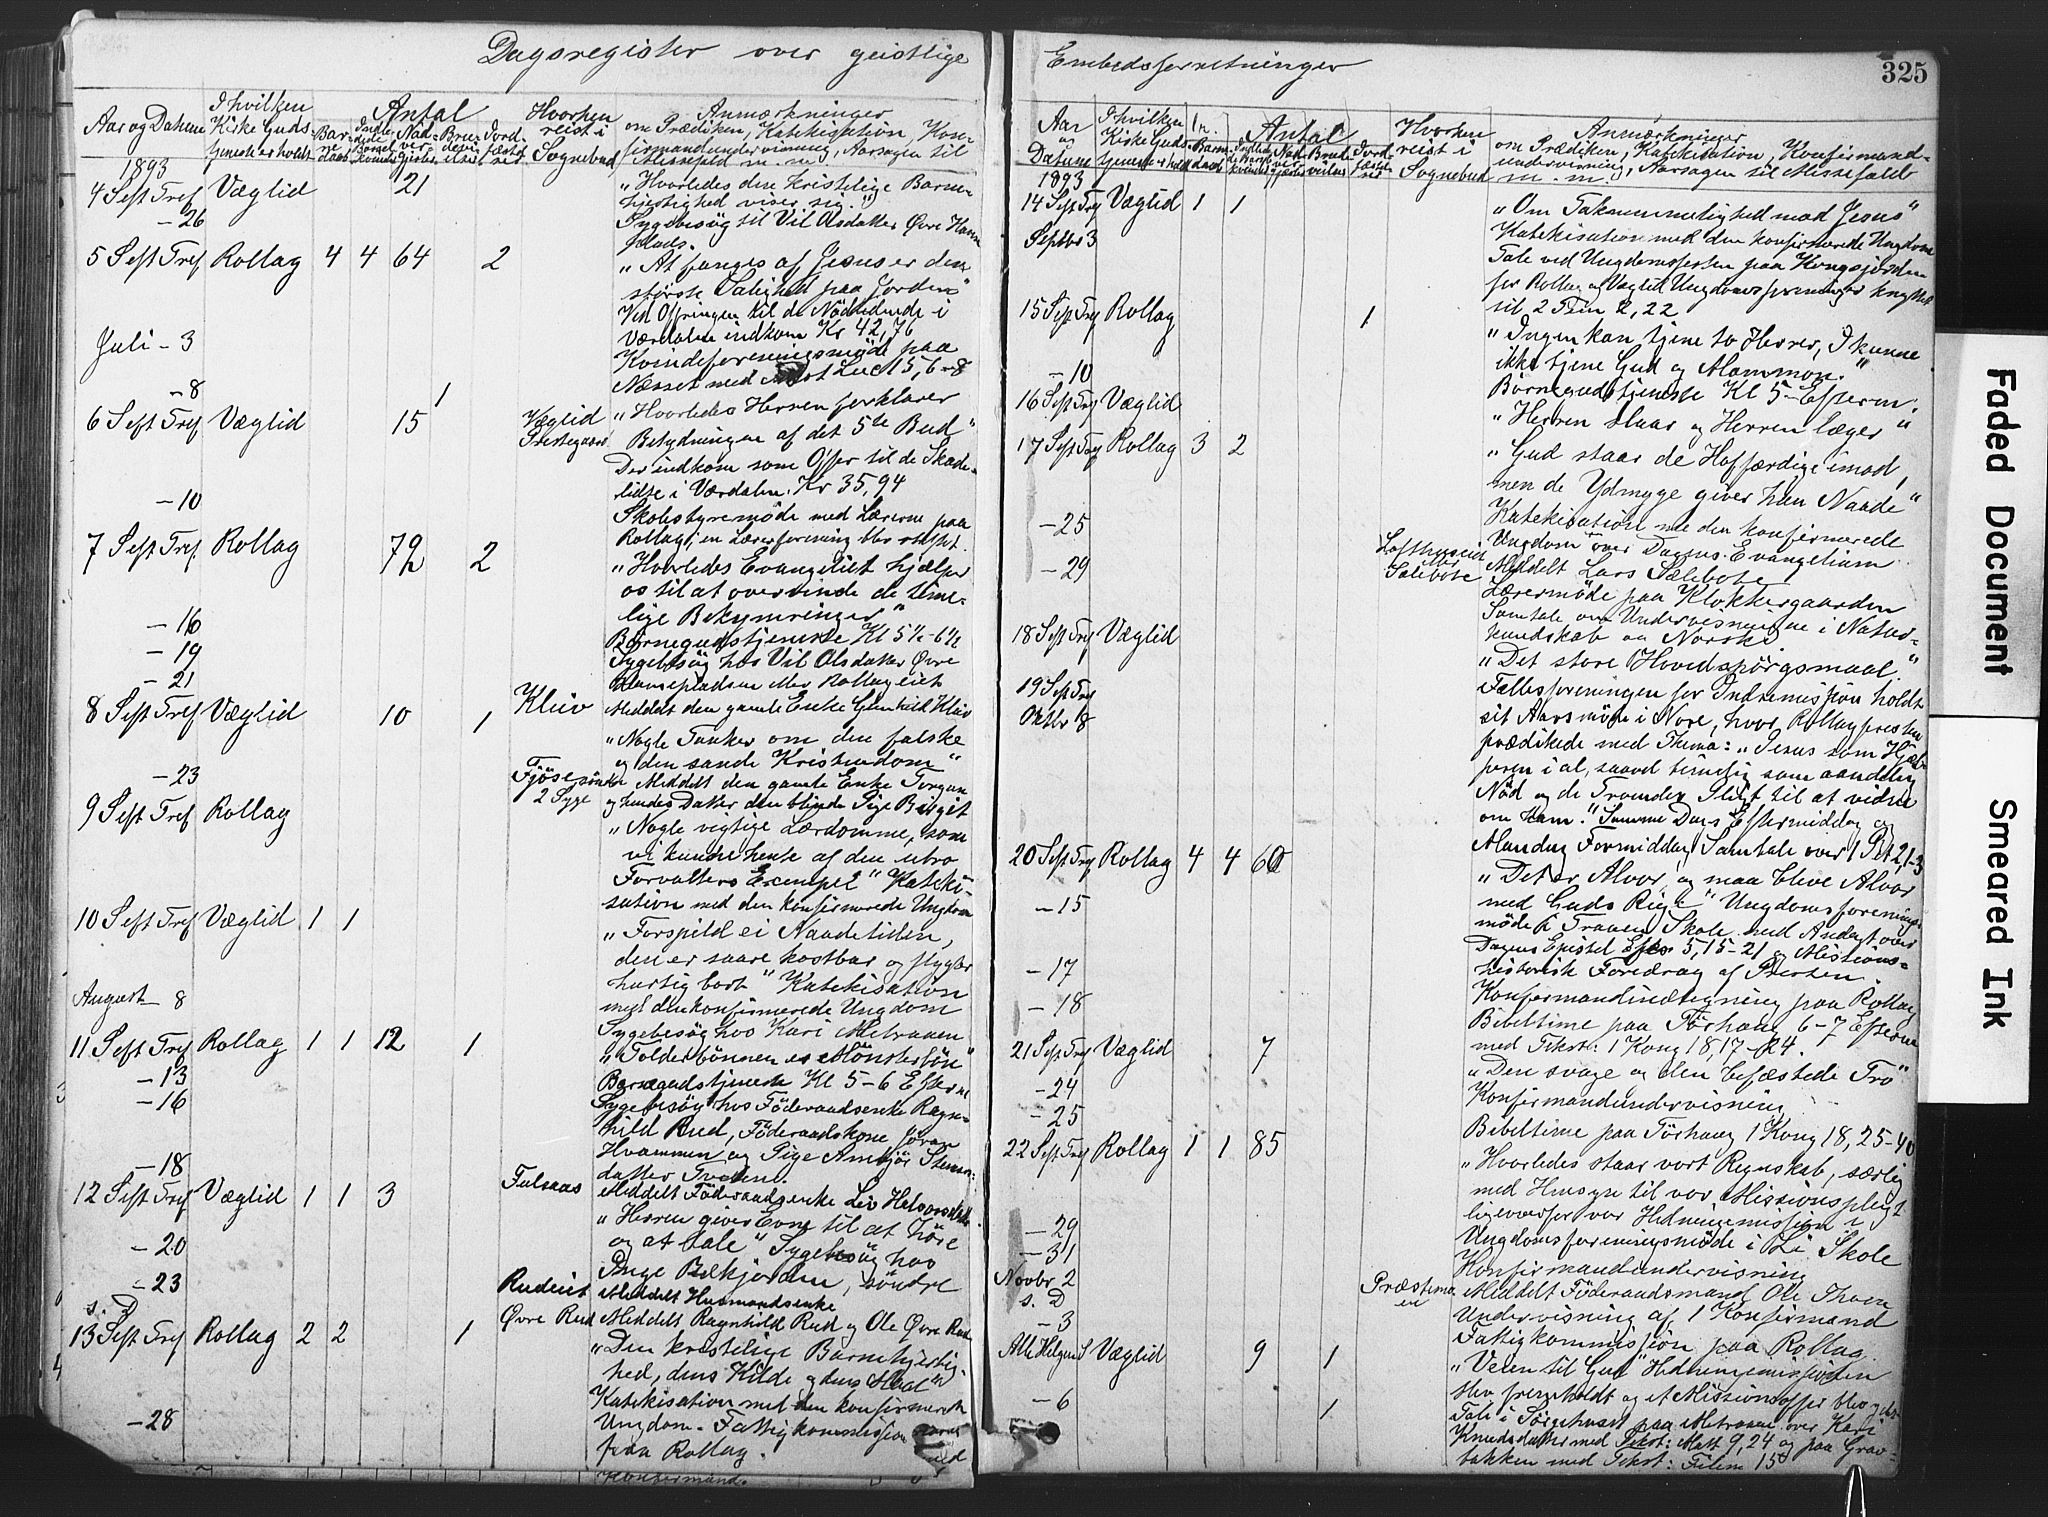 Dagsregister over geistlige
Embedsforretninger
325
Aar og Datum
I hvilken Kirke Gudstjeneste er holdt
Antal
Hvorhen reist i Sognebud
Anmærkninger
om Prædiken, Katekisation, Konfirmandundervisning, Aarsagen til
Messefald m.m.
1893
4 Sept Tref Væglid 21
"Hvorledes den kristelige Barmhjertighed viser sig."
- 26
Sygebesøg til Vil Olsdatter Øvre
5 Sept Tref Rollag 4 4 64 2
"At fanges af Jesus er den
største Salighed paa Jorden"
Ved Ofringen til de Nødlidende i
Værdalen indkom Kr 42,76
Juli - 3
Kvindeforeningsmøde paa
Næsset med Luc 15, 6-8
- 8
1
6 Sept Tref Væglid 15
Væglid
Prestegaard
"Hvorledes Herren forklarer
Betydningen af det 5te Bud"
Der indkom som Offer til de Skadelidte i Værdalen Kr 35,94
- 10
Skolestyremøde med Lærerne paa
Rollag, en Lærerforening blev
7 Sept Tref Rollag 72 2
"Hvorledes Evangeliet hjælper
os til at overvinde de timelige Bekymringer"
- 16
Børnegudstjeneste Kl 5½-6½
- 19
Sygebesøg hos Vil Olsdatter Øvre
- 21
Kliiv
Meddelt den gamle Enke Gunhild Kliiv
8 Sept Tref Væglid 10 1
"Nogle Tanker om den falske
og den sande Kristendom"
- 23
2 Syge
Meddelt den gamle Enke Torgun
og hendes Datter den blinde Pige Birgit
9 Sept Tref Rollag
"Nogle vigtige Lærdomme, som
vi kunde hente af den utro
Forvalters Exempel" Katekisation med den konfirmerede Ungdom
10 Sept Tref Væglid 1 1
"Forspild ei Naadetiden,
den er saare kostbar og flygter
hurtig bort" Katekisation
med den konfirmerede Ungdom
August - 8
Sygebesøg hos Kari Metraaen
11 Sept Tref Rollag 1 1 12 1
"Tolderbønnen en Mønsterbøn"
- 13
Barnegudstjeneste Kl 5-6 Efterm
- 16
Sygebesøg hos Föderaadsenke Ragnhild Rud, Föderaadskone Jøran
Hvammen og Pige
- 18
Fulsaas
Meddelt Föderaadsenke Liv
12 Sept Tref Væglid 1 1 3
"Herren giver Evne til at høre
og at tale" Sygebesøg hos
- 20
- 23
Rudeiet
Meddelt Husmandsenke
s. D
Øvre Rud
Meddelt Ragnhild Rud og Ole Øvre Rud
13 Sept Tref Rollag 2 2 1
"Den kristelige Barmhjertighed, dens Kilde og dens Maal"
Katekisation med den konfirmerede
Ungdom. Fattigkommission
- 28
paa Rollag.
Konfirmand.
Aar og Datum
I hvilken Kirke Gudstjeneste er holdt
Antal
Hvorhen reist i Sognebud
Anmærkninger
om Prædiken, Katekisation, Konfirmandundervisning, Aarsagen til Messefald
m. m.
1893
14 Sept Tref Væglid 1 1
"Om Taknemmelighed mod Jesus"
Katekisation med den konfirmerede Ungdom
Septbr 3
Tale ved Ungdomsfesten paa Kongsjorden
for Rollag og Væglid Ungdomsforeninger knyttet
til 2 Tim 2, 22
15 Sept Tref Rollag 1
"Ingen kan tjene to Herrer, I kunne
ikke tjene Gud og Mammon."
- 10
Børnegudstjeneste Kl 5 Efterm.
16 Sept Tref Væglid
"Herren slaar og Herren læger"
17 Sept Tref Rollag 3 2
"Gud staar de Hoffærdige imod,
men de Ydmyge giver han Naade"
Katekisation me den konfirmerede
Ungdom over Dagens Evangelium
- 25
Meddelt Lars Sælebote
- 29
Lærermøde paa Klokkergaarden
Samtale over Undervisningen i Naturkundskab og Norsk.
18 Sept Tref Væglid
"Det store Hovedspørgsmaal."
19 Sept Tref
Oktbr 8
Fællesforeningen for Indremission holdt
sit Aarsmøde i Nore, hvor Rollagpresten
prædikede med Thema: "Jesus som Hjælperen i al, saavel timelig som aandelig
Nød og de Troendes Pligt til at vidne
om Ham." Samme Dags Eftermiddag og
Mandag Formiddag Samtale over 1 Pet 2,1-3
20 Sept Tref Rollag 4 4 60
"Det er Alvor, og maa blive Alvor
med Guds Rige"
- 15
Ungdomsforeningsmøde i Traaen Skole med Andagt over
Dagens Epistel Efes 5, 15-21 og Missionshistorisk Foredrag af Presten.
- 17
Konfirmandindtegning paa Rollag
- 18
Bibeltime paa Tørhaug 6-7 Efterm
med Tekst: 1 Kong 18, 17-24.
21 Sept Tref Væglid 7
"Den svage og den befæstede Tro"
- 24
Konfirmandundervisning
- 25
Bibeltime paa Tørhaug 1 Kong 18, 25-40
22 Sept Tref Rollag 1 1 85
"Hvorledes staar vort Regnskab, særlig
med Hensyn til vor Missionspligt
ligeoverfor vor Hedningemission"
- 29
Ungdomsforeningsmøde i Li Skole
- 31
Konfirmandundervisning
Novbr 2
Meddelt Föderaadsmand Ole
s. D
Undervisning af 1 Konfirmand
- 3
Fattigkommission paa Rollag.
Alle Helgens Væglid 9 1
"Veien til Gud" Hedningemissionen
blev fremholdt og et Missionsoffer blev
- 6
1
Tale i Sørgehuset paa Metraaen over Kari
Knudsdatter med Tekst: Matt 9,24 og paa Gravbakken med Tekst: Filem 15
Faded Document
Smeared Ink